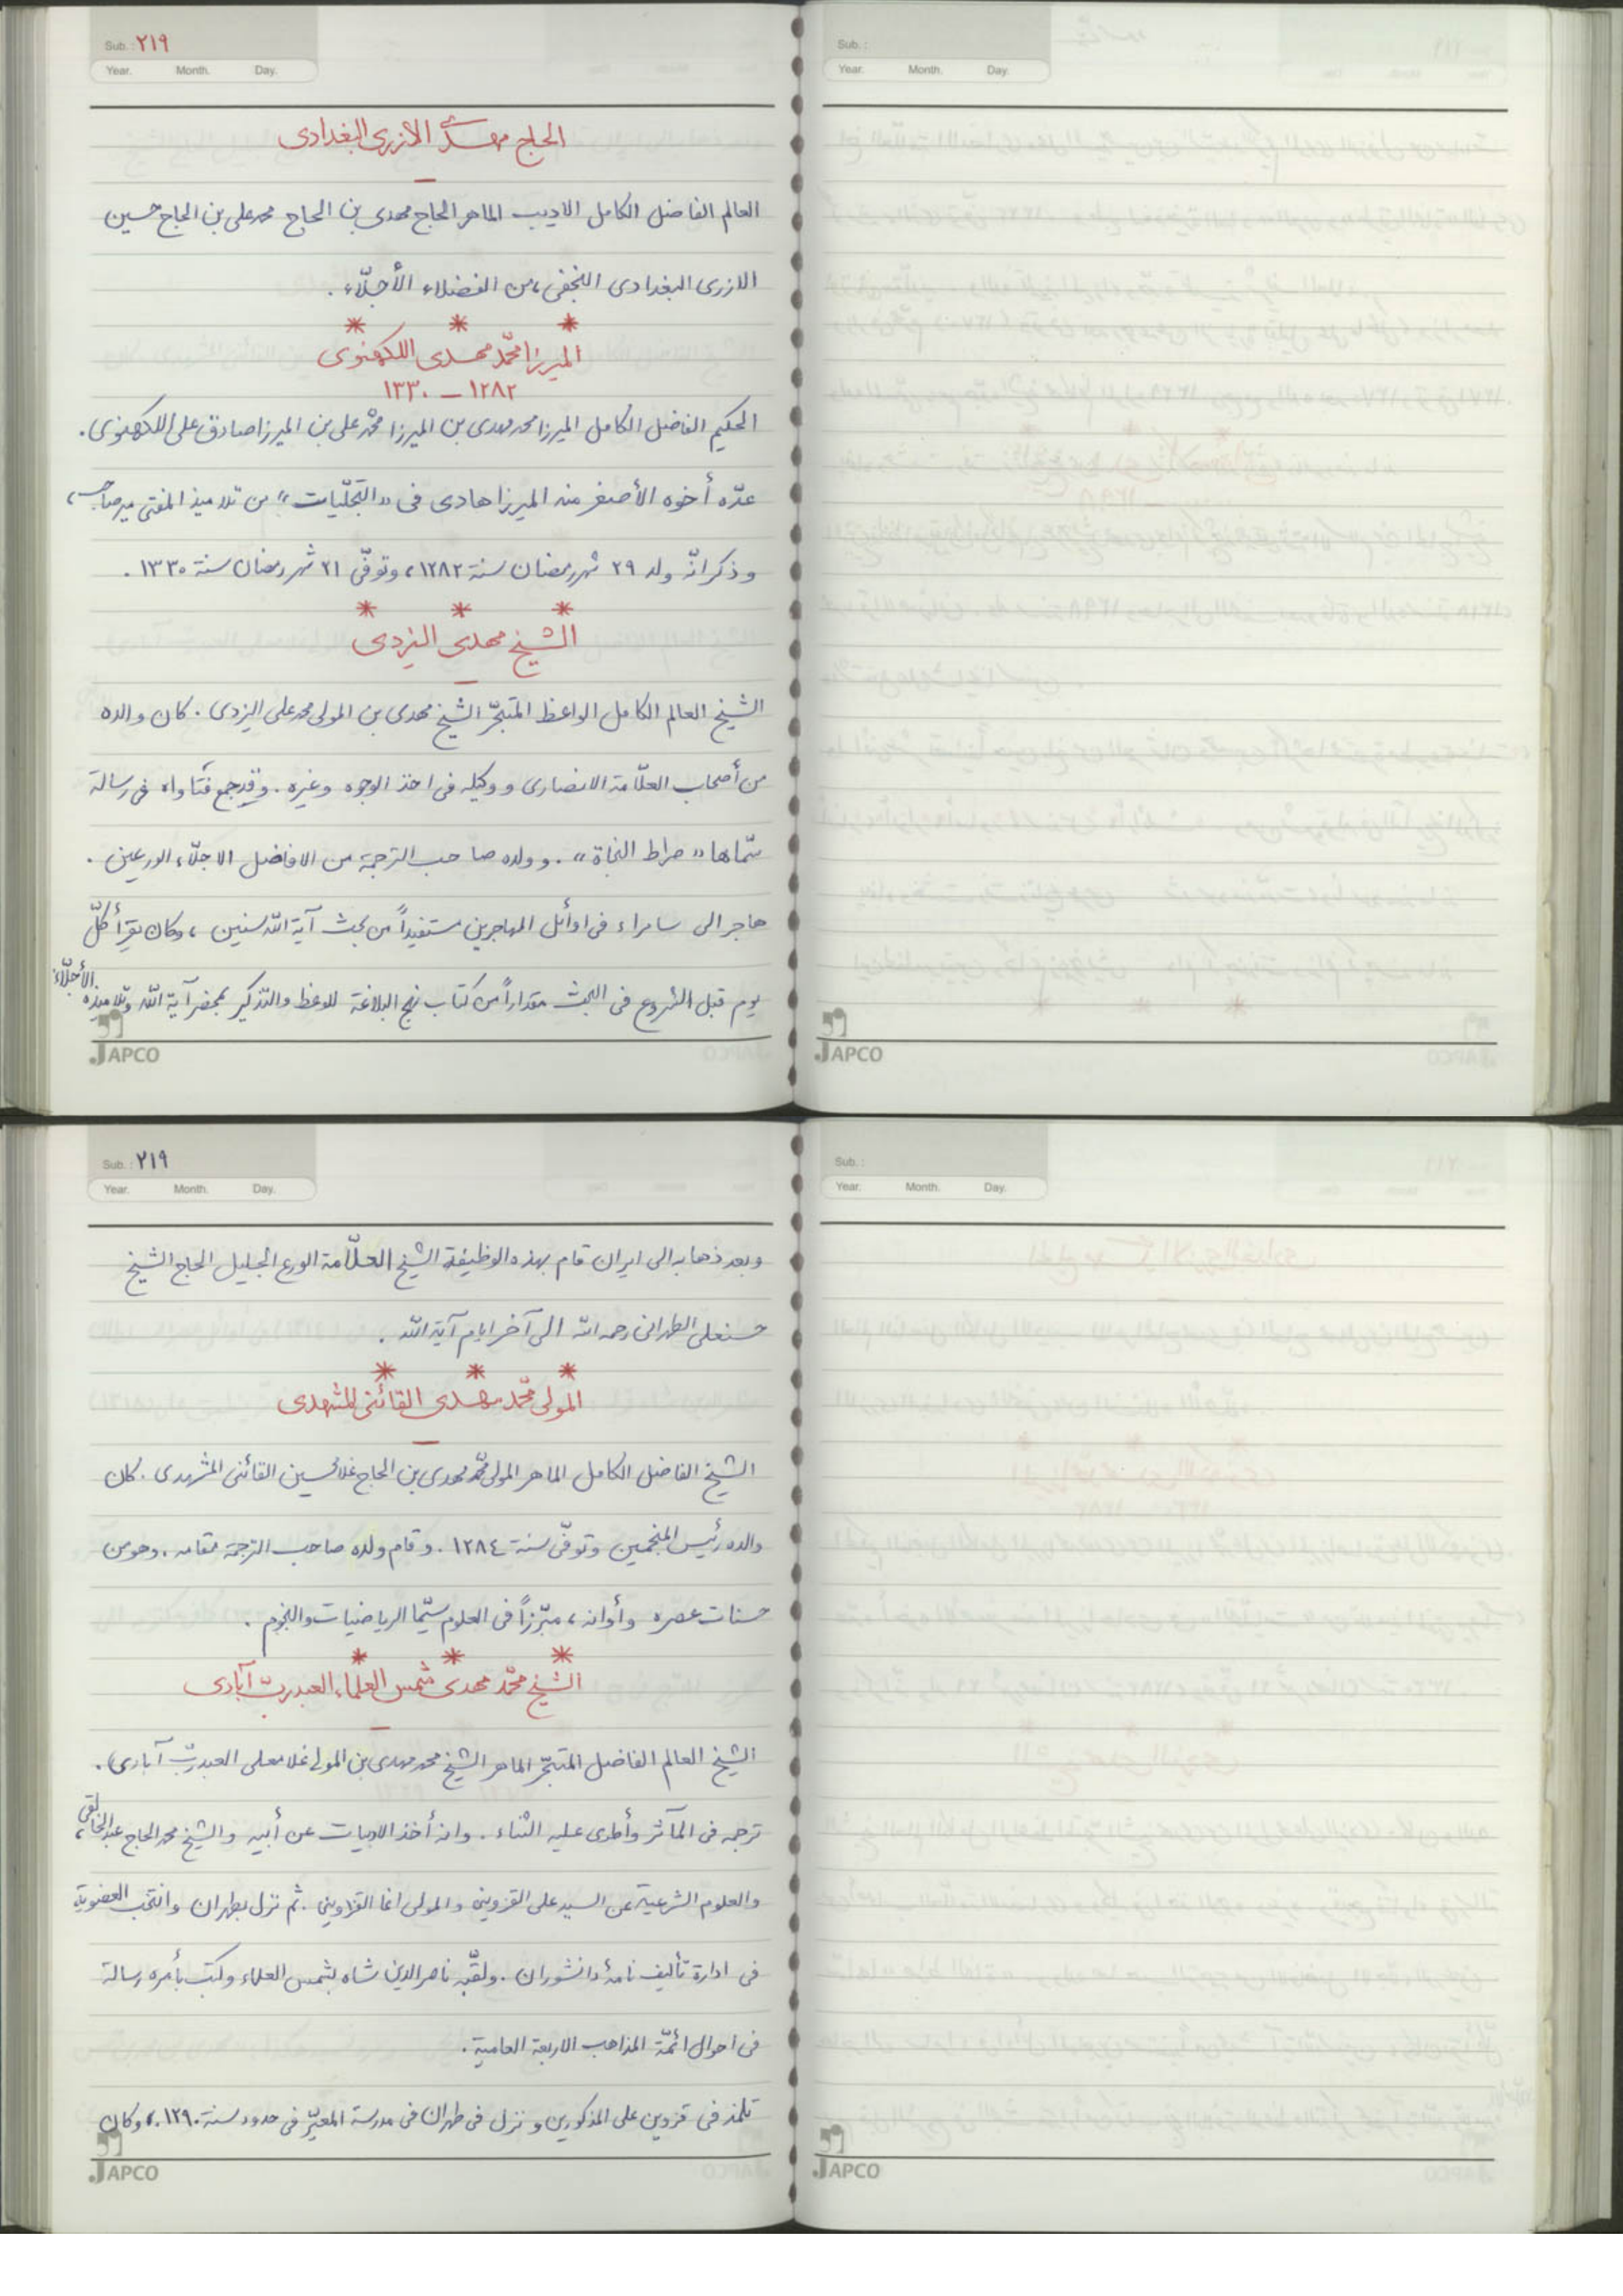 Sub. : ٢١٩
Year. Month. Day.
الحاج مهدي الازرى البغدادى
العالم الفاضل الكامل الاديب الماهر الحاج مهدى بن الحاج محمد على بن الحاج حسين
الازرى البغدادى النجفى، من الفضلاء الأجلّاء.
* * *
الميرزا محمّد مهدى اللكهنوى
١٢٨٢ – ١٣٣٠
الحكيم الفاضل الكامل الميرزا محمد مهدى بن الميرزا محمّد على بن الميرزا صادق على اللكهنوى.
عدّه أخوه الأصغر منه الميرزا هادى فى «التجلّيات» من تلاميذ المفتى مير صاحب،
و ذكر انّه ولد ٢٩ شهر رمضان سنة ١٢٨٢، وتوفّى ٢١ شهر رمضان سنة ١٣٣٠.
* * *
الشيخ مهدى اليزدى
الشيخ العالم الكامل الواعظ المتبحّر الشيخ مهدى بن المولى محمد على اليزدى. كان والده
من أصحاب العلّامة الانصارى و وكيله فى اخذ الوجوه وغيره. وقد جمع فتاواه فى رسالة
سمّاها «صراط النجاة». و ولده صاحب الترجمة من الافاضل الاجلّاء الورعين.
هاجر الى سامراء فى اوائل المهاجرين مستفيداً من بحث آية الله سنين، وكان يقرأ كلّ
يوم قبل الشروع فى البحث مقداراً من كتاب نهج البلاغة للوعظ والتذكير بمحضر آية الله وتلاميذه الأجلّاء
JAPCO
Sub. :
Year. Month. Day.
JAPCO
Sub. : ٢١٩
Year. Month. Day.
وبعد ذهابه الى ايران قام بهذه الوظيفة الشيخ العلّامة الورع الجليل الحاج الشيخ
حسنعلى الطهرانى رحمه الله الى آخر ايام آية الله.
* * *
المولى محمّد مهدى القائنى المشهدى
الشيخ الفاضل الكامل الماهر المولى محمّد مهدى بن الحاج غلامحسين القائنى المشهدى. كان
والده رئيس المنجمين وتوفّى سنة ١٢٨٤. و قام ولده صاحب الترجمة مقامه. وهو من
حسنات عصره وأوانه، مبرّزاً فى العلوم سيّما الرياضيات والنجوم.
* * *
الشيخ محمّد مهدى شمس العلماء العبدربّ آبادى
الشيخ العالم الفاضل المتبحّر الماهر الشيخ محمد مهدى بن المولى غلامعلى العبدربّ آبادى.
ترجمه فى المآثر وأطرى عليه الثناء. وانه أخذ الادبيات عن أبيه والشيخ محمد الحاج عبد الخالقى،
والعلوم الشرعية عن السيد على القزوينى والمولى اغا القزوينى. ثم نزل بطهران وانتخب العضوية
فى ادارة تأليف نامهٔ دانشوران. ولقّبه ناصر الدين شاه بشمس العلماء وكتب بأمره رسالة
فى احوال ائمّة المذاهب الاربعة العامية.
تلمذ فى قزوين على المذكورين و نزل فى طهران فى مدرسة المعيّر فى حدود سنة ١٢٩٠، وكان
JAPCO
Sub. :
Year. Month. Day.
JAPCO